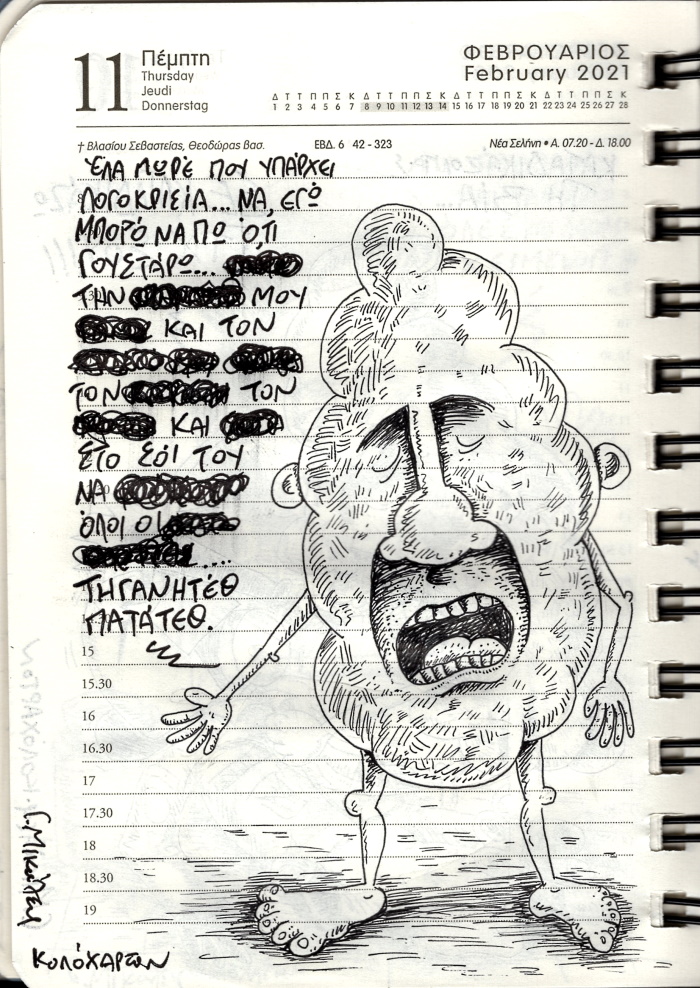 11
Πέμπτη
Thursday
Jeudi
Donnerstag
ΦΕΒΡΟΥΑΡΙΟΣ
February 2021
Δ Τ Τ Π Π Σ Κ Δ Τ Τ Π Π Σ Κ Δ Τ Τ Π Π Σ Κ Δ Τ Τ Π Π Σ Κ
1 2 3 4 5 6 7 8 9 10 11 12 13 14 15 16 17 18 19 20 21 22 23 24 25 26 27 28
† Βλασίου Σεβαστείας, Θεοδώρας βασ. ΕΒΔ. 6 42 - 323 Νέα Σελήνη • Α. 07.20 - Δ. 18.00
ΈΛΑ ΜΩΡΈ ΠΟΥ ΥΠΆΡΧΕΙ
ΛΟΓΟΚΡΙΣΙΑ... ΝΑ, ΕΓΏ
ΜΠΟΡΏ ΝΑ ΠΩ Ό,ΤΙ
ΓΟΥΣΤΆΡΩ...
ΤΗΝ ΜΟΥ
ΚΑΙ ΤΟΝ
ΤΟΝ ΤΟΝ
ΚΑΙ
ΣΤΟ ΣΌΙ ΤΟΥ
ΝΑ
ΌΛΟΙ ΟΙ
....
ΤΗΓΑΝΗΤΈΘ
ΠΑΤΆΤΕΘ.
15
15.30
16
16.30
17
17.30
18
18.30
19
ΚΩΛΌΧΑΡΤΩΝ